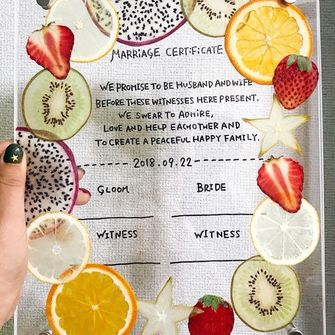 MARRIAGE CERTIFICATE
WE PROMISE TO BE HUSBAND AND WIFE
BEFORE THESE WITNESSES HERE PRESENT.
WE SWEAR TO ADMIRE,
LOVE AND HELP EACHOTHER AND
TO CREATE A PEACEFUL HAPPY FAMILY.
2018.09.22
GLOOM BRIDE
WITNESS WITNESS